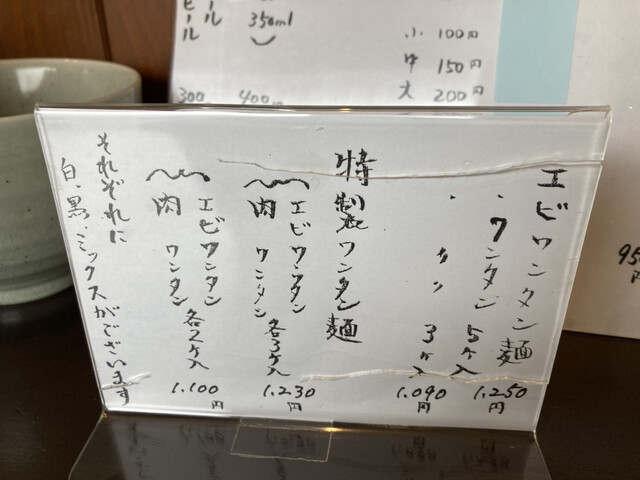 エビワンタン麺
・ワンタン 5ヶ入 1.250円
・ 〃 3ヶ入 1.090円
特製ワンタン麺
エビワンタン
肉 ワンタン
各3ヶ入 1.230円
エビワンタン
肉 ワンタン
各2ヶ入 1.100円
それぞれに
白、黒、ミックスがございます
小 100円
中 150円
大 200円
ビール
350ml
400
300
95
円